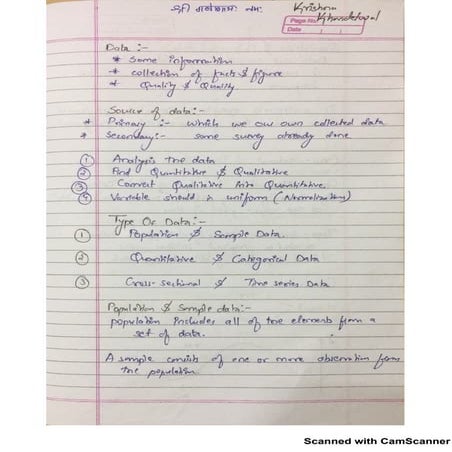 श्री गणेशाय नमः
Krishna
Khandelwal
Page No.
Date
Data :-
* Some information
* collection of facts & figure
* Quality & Quality
Source of data :-
* Primary :- which we our own collected data
* Secondary :- some survey already done
1 Analysis the data
2 Find Quantitative & Qualitative
3 Convert Qualitative into Quantitative
4 Variable should in uniform (Normalization)
Type Of Data :-
1 Population & Sample Data.
2 Quantitative & Categorical Data
3 Cross-sectional & Time series Data
Population & Sample data :-
population includes all of the elements from a
set of data.
A sample consists of one or more observation from
the population.
Scanned with CamScanner